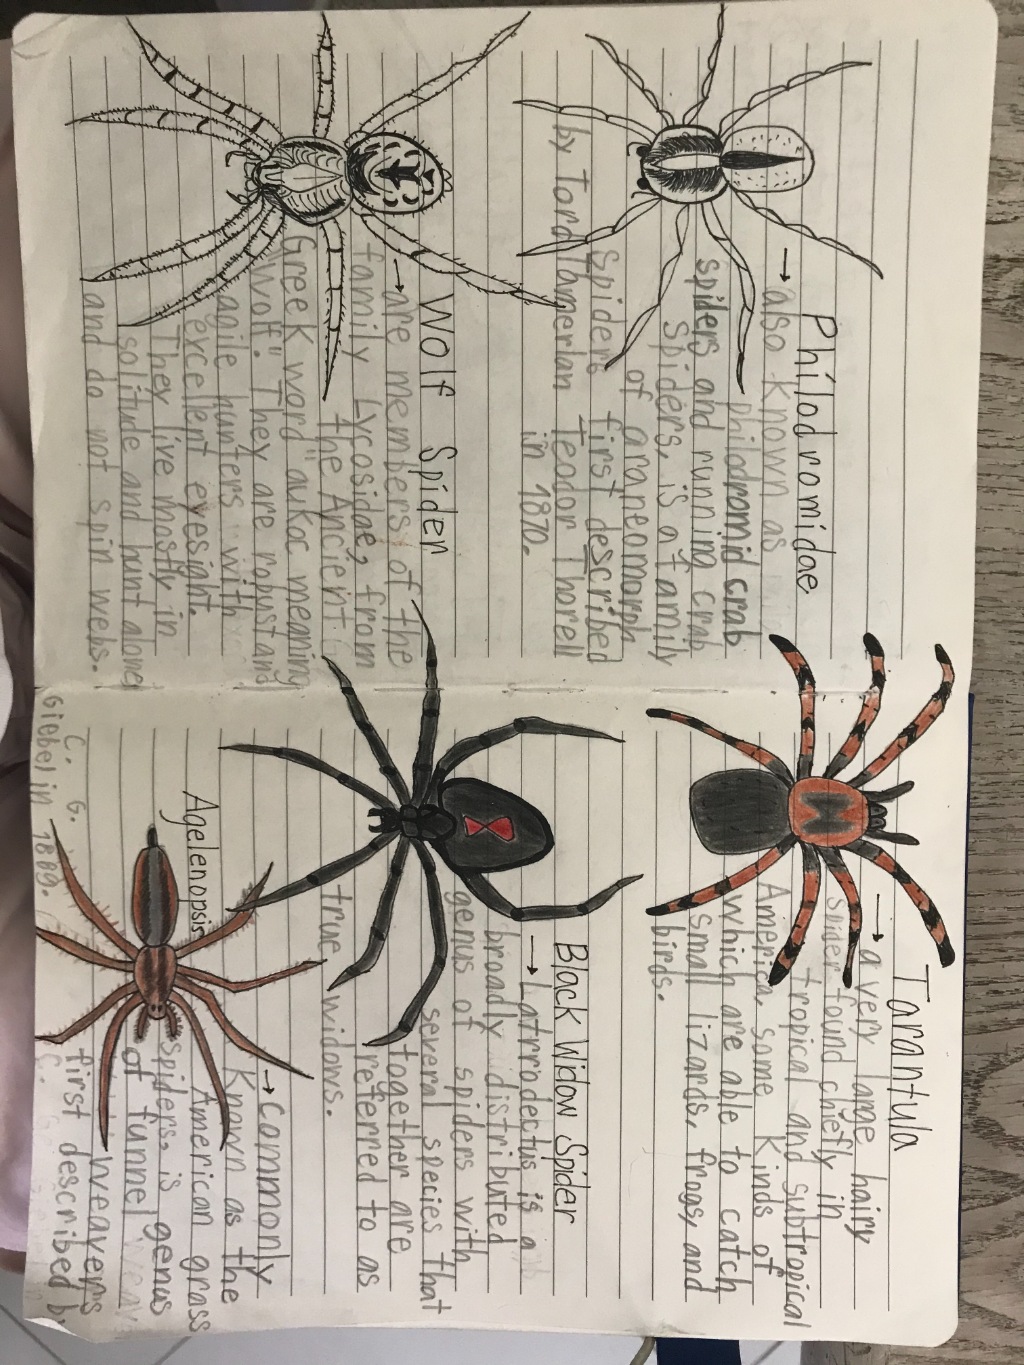 Philodromidae
→ also known as
philodromid crab
spiders and running crab
Spiders, is a family
of araneomorph
Spiders first described
by Tord Tamerlan Teodor Thorell
in 1870.
Wolf Spider
→ are members of the
family Lycosidae, from
the Ancient
Greek word "λυκος meaning
"Wolf." They are robust and
agile hunters with
excellent eyesight.
They live mostly in
solitude and hunt alone
and do not spin webs.
Tarantula
→ a very large hairy
spider found chiefly in
tropical and subtropical
America, some kinds of
which are able to catch
small lizards, frogs, and
birds.
Black Widow Spider
→ Latrodectus is a
broadly distributed
genus of spiders with
several species that
together are
referred to as
true widows.
Agelenopsis
→ Commonly
known as the
American grass
spiders, is genus
of funnel
weavers
first described by
C. G.
Giebel in 1869.